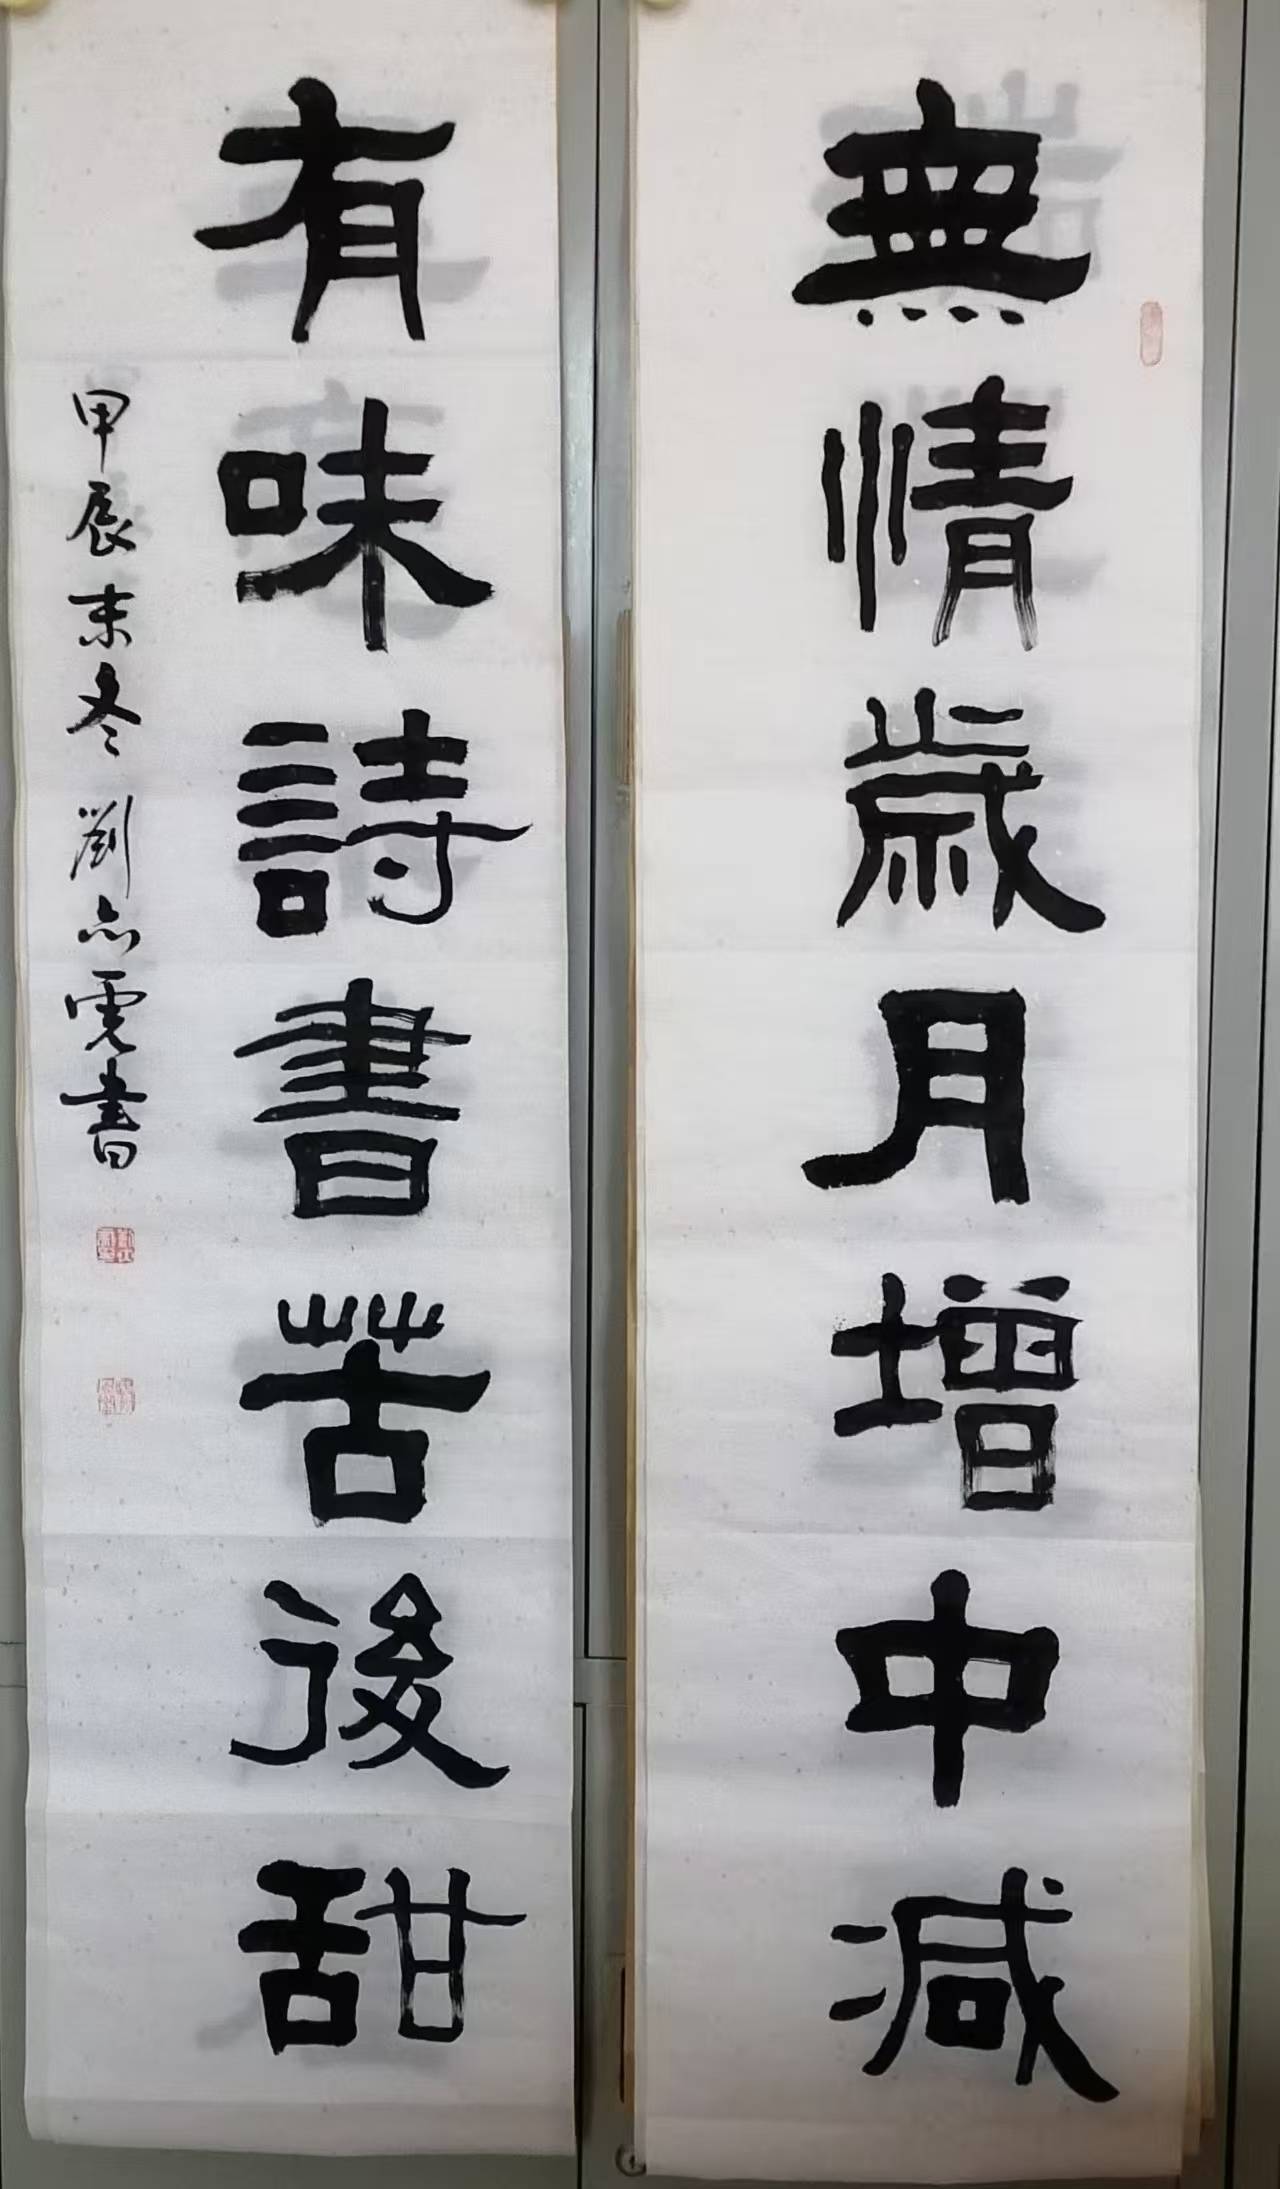 無情歲月增中減
有味詩書苦後甜
甲辰末冬劉亦雲書